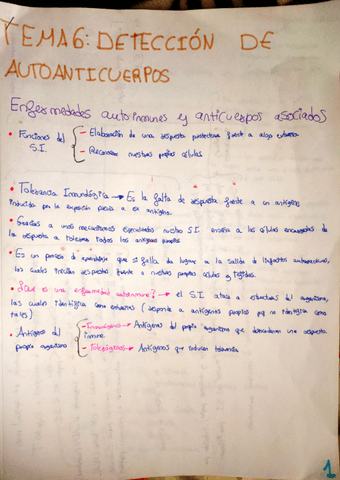 TEMA 6: DETECCIÓN DE
AUTOANTICUERPOS
Enfermedades autoinmunes y anticuerpos asociados
• Funciones del S.I. - Elaboración de una respuesta protectora frente a algo extraño
- Reconocer nuestras propias células
• Tolerancia Inmunológica → Es la falta de respuesta frente a un antígeno
inducida por la exposición previa a ese antígeno.
• Gracias a unos mecanismos especializados nuestro S.I. enseña a las células encargadas de
la respuesta a tolerar todos los antígenos propios
• Es un proceso de aprendizaje que si falla da lugar a la salida de linfocitos autorreactivos,
los cuales inician respuestas frente a nuestras propias células y tejidos.
• ¿Qué es una enfermedad autoinmune? → el S.I. ataca a estructuras del organismo,
las cuales identifica como extrañas (responde a antígenos propios pq no identifica como
tales)
• Antígenos del - Inmunógenos → Antígenos del propio organismo que desencadenan una respuesta
inmune
propio organismo - Tolerógenos → Antígenos que inducen tolerancia
1